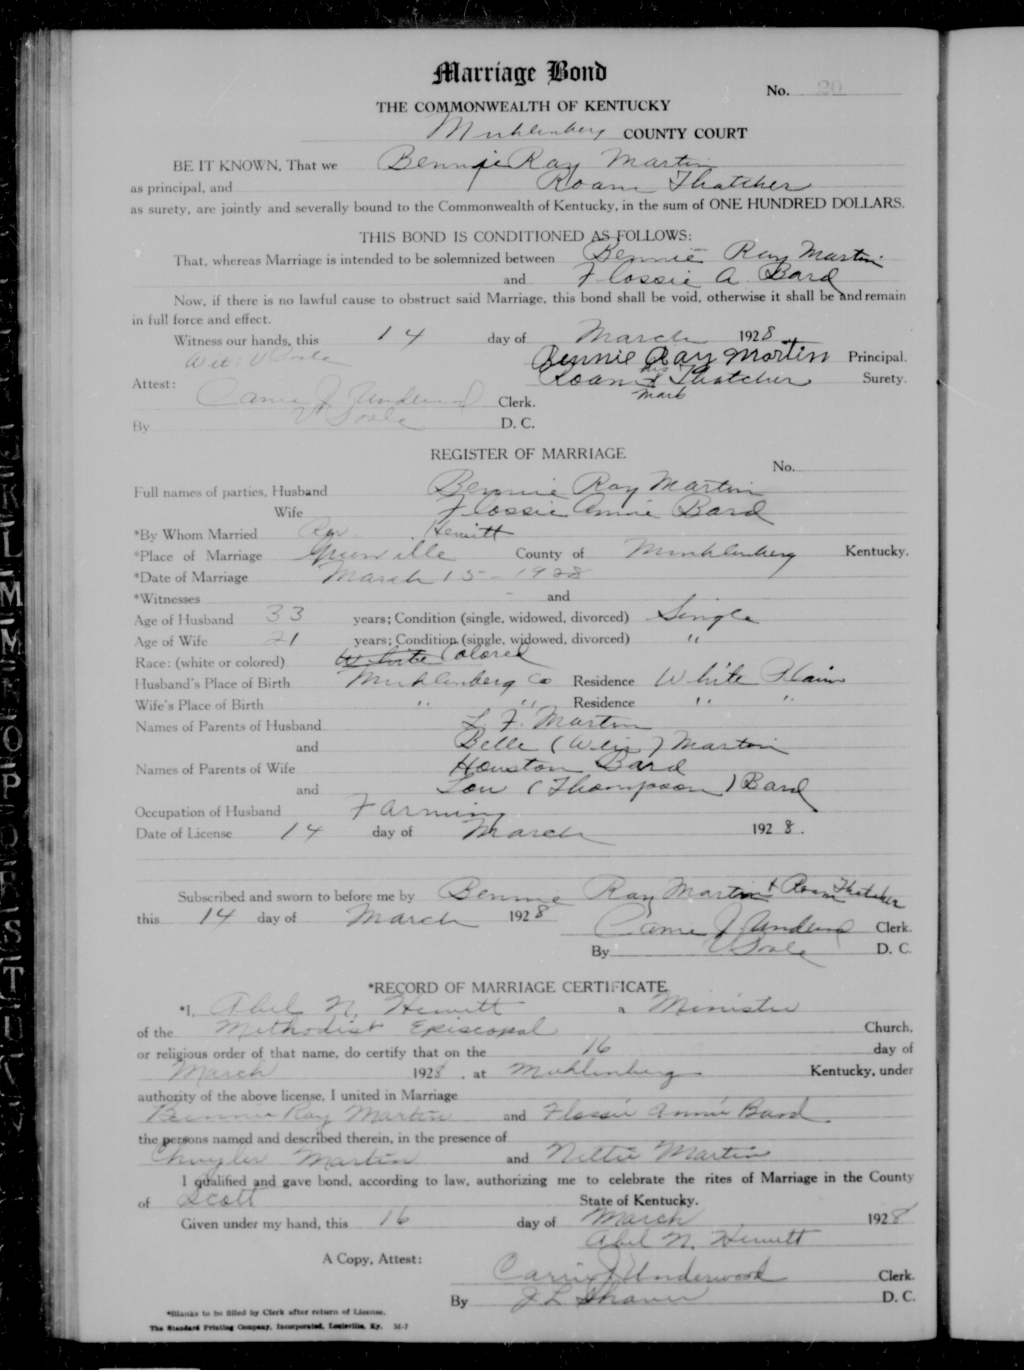 Marriage Bond
No. 20
THE COMMONWEALTH OF KENTUCKY
Muhlenberg COUNTY COURT
BE IT KNOWN, That we Bennie Ray Martin
as principal, and Roam Thatcher
as surety, are jointly and severally bound to the Commonwealth of Kentucky, in the sum of ONE HUNDRED DOLLARS.
THIS BOND IS CONDITIONED AS FOLLOWS:
That, whereas Marriage is intended to be solemnized between Bennie Ray Martin
and Flossie A Bard
Now, if there is no lawful cause to obstruct said Marriage, this bond shall be void, otherwise it shall be and remain
in full force and effect.
Witness our hands, this 14 day of March 1928
Wit: V Soale
Bennie Ray Martin Principal.
Attest: Roam his x mark Thatcher Surety.
Carrie J Underwood Clerk.
By V Soale D. C.
REGISTER OF MARRIAGE
No.
Full names of parties, Husband Bennie Ray Martin
Wife Flossie Annie Bard
*By Whom Married Rev. Hewitt
*Place of Marriage Greenville County of Muhlenberg Kentucky.
*Date of Marriage March 15 - 1928
*Witnesses - and
Age of Husband 33 years; Condition (single, widowed, divorced) Single
Age of Wife 21 years; Condition (single, widowed, divorced) "
Race: (white or colored) White Colored
Husband's Place of Birth Muhlenberg Co Residence White Plain
Wife's Place of Birth " " Residence " "
Names of Parents of Husband L. F. Martin
and Belle (Weir) Martin
Names of Parents of Wife Houston Bard
and Lou (Thompson) Bard
Occupation of Husband Farming
Date of License 14 day of March 1928.
Subscribed and sworn to before me by Bennie Ray Martin + Roam Thatcher
this 14 day of March 1928
Carrie J Underwood Clerk.
By V Soale D. C.
*RECORD OF MARRIAGE CERTIFICATE
*I, Abel N. Hewitt a Minister
of the Methodist Episcopal Church,
or religious order of that name, do certify that on the 16 day of
March 1928, at Muhlenberg Kentucky, under
authority of the above license, I united in Marriage
Bennie Ray Martin and Flossie Annie Bard
the persons named and described therein, in the presence of
Chuyler Martin and Nettie Martin
I qualified and gave bond, according to law, authorizing me to celebrate the rites of Marriage in the County
of Scott State of Kentucky.
Given under my hand, this 16 day of March 1928
Abel N. Hewitt
A Copy, Attest:
Carrie J Underwood Clerk.
By J L Shaver D. C.
*Blanks to be filled by Clerk after return of License.
The Standard Printing Company, Incorporated, Louisville, Ky. M-7